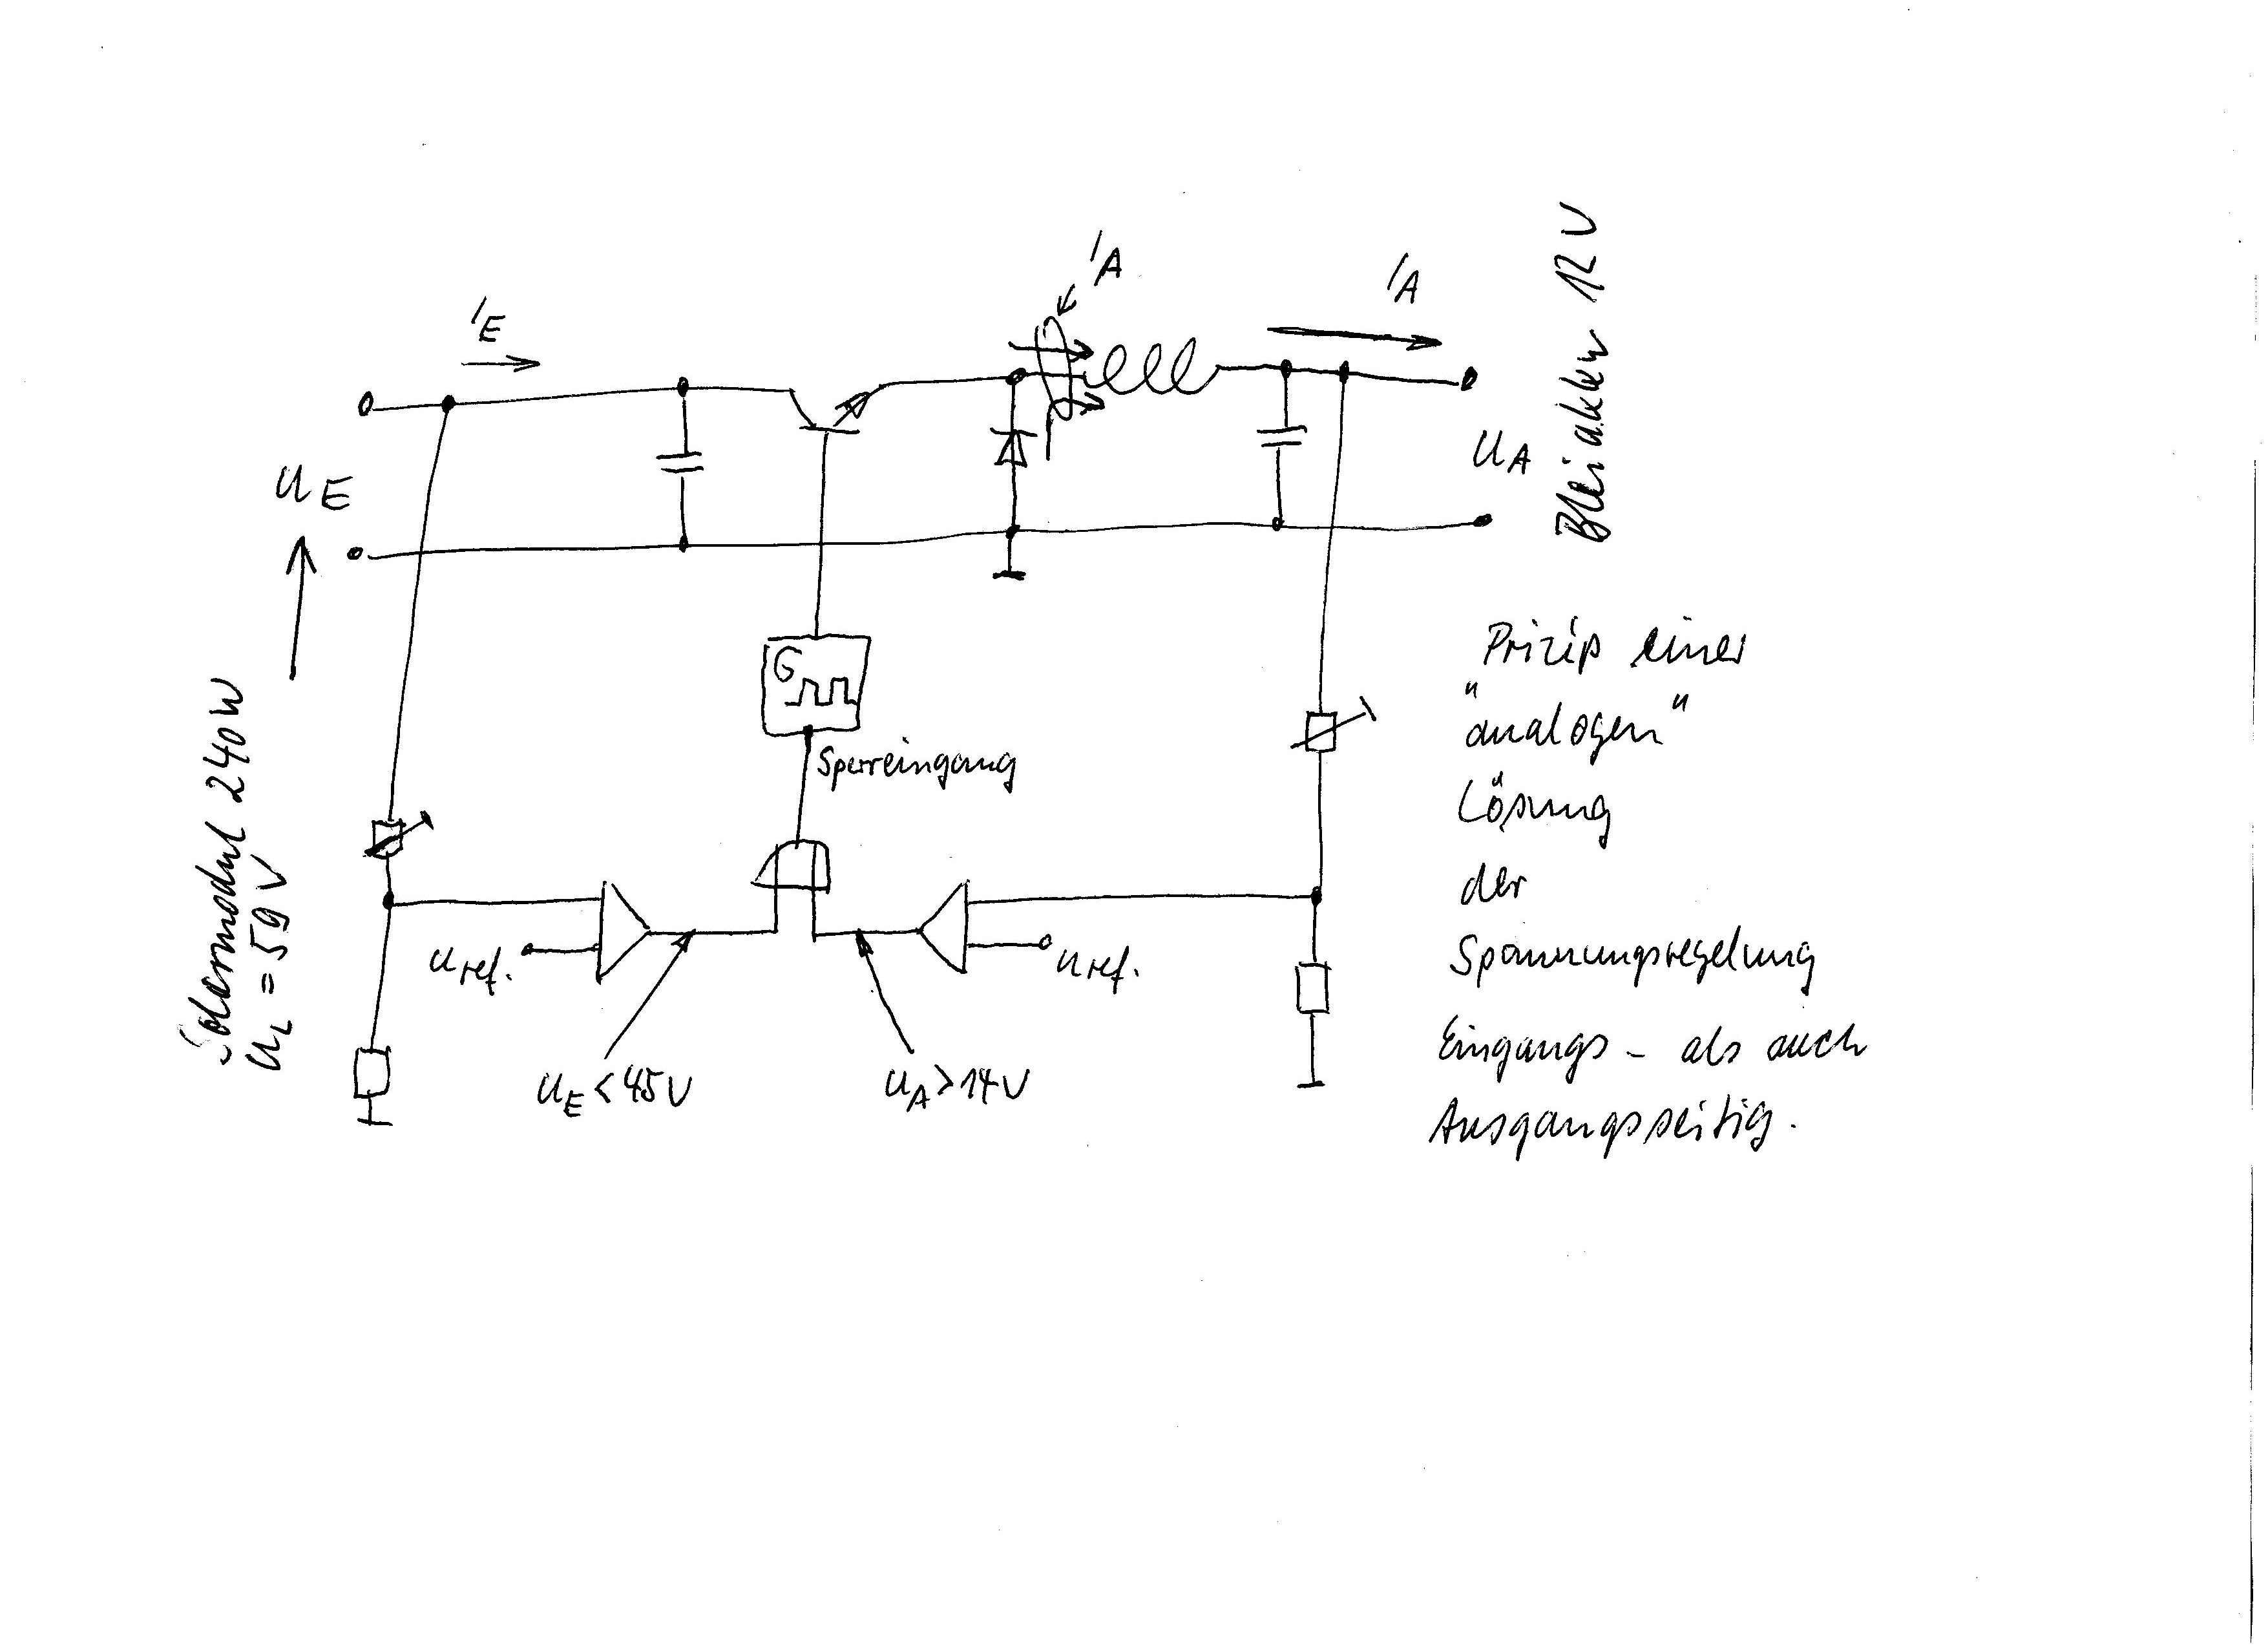 I_E
I_A
I_A
U_E
U_A
Bleiakku 12V
Solarmodul 240W
U_L = 59V
G
Sperreingang
U_ref.
U_ref.
U_E < 45V
U_A > 14V
Prizip einer
"analogen"
Lösung
der
Spannungsregelung
Eingangs- als auch
Ausgangsseitig.